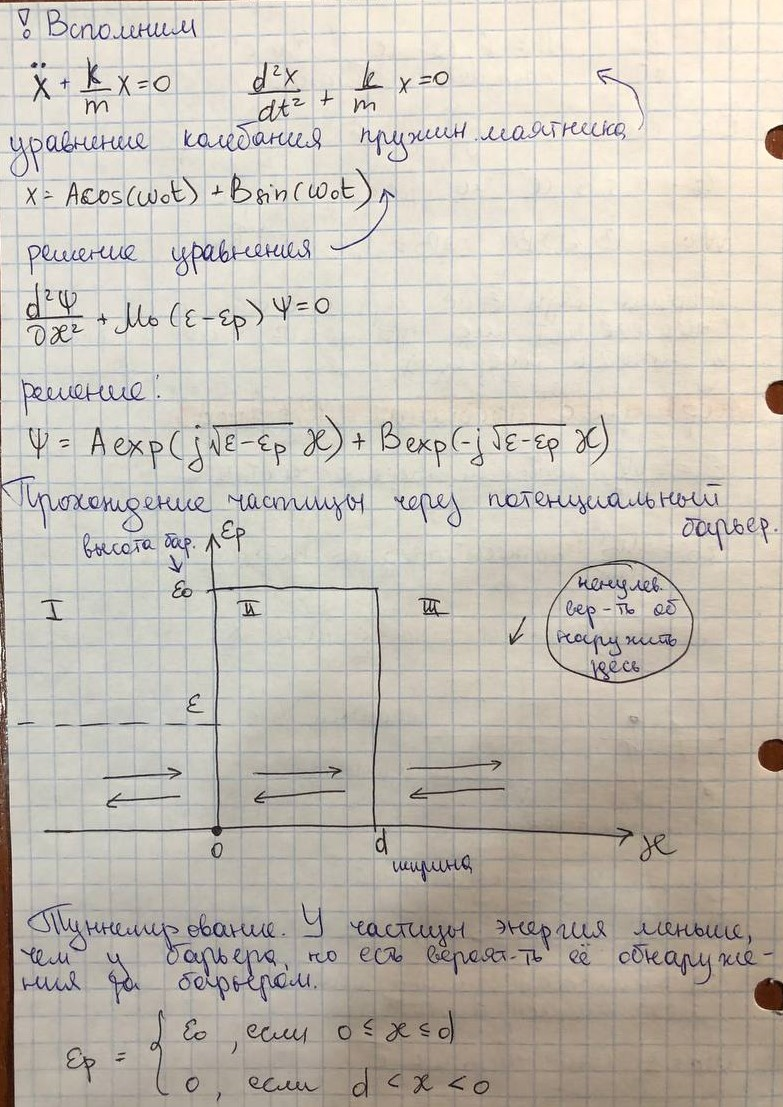 ! Вспомним
ẍ + k/m x = 0    d²x/dt² + k/m x = 0
уравнение колебания пружин. маятника
x = A cos(ω₀t) + B sin(ω₀t)
решение уравнения
d²Ψ/∂x² + M₀ (ε - εp) Ψ = 0
решение:
Ψ = A exp(j√(ε - εp) x) + B exp(-j√(ε - εp) x)
Прохождение частицы через потенциальный
барьер.
высота бар.
εp
ε₀
I II III
ненулев.
вер-ть об
наружить
здесь
ε
0 d x
ширина
Туннелирование. У частицы энергия меньше,
чем у барьера, но есть вероят-ть её обнаруже-
ния за барьером.
εp = { ε₀, если 0 ≤ x ≤ d
0, если d < x < 0